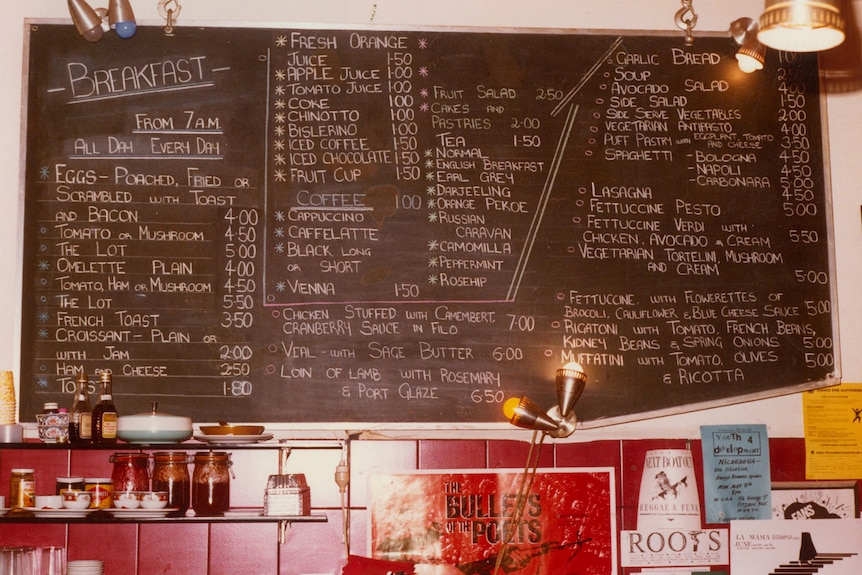 BREAKFAST
FROM 7 A.M.
ALL DAY EVERY DAY
EGGS - POACHED, FRIED OR
SCRAMBLED WITH TOAST
AND BACON 4·00
TOMATO OR MUSHROOM 4·50
THE LOT 5·00
OMELETTE PLAIN 4·00
TOMATO, HAM OR MUSHROOM 4·50
THE LOT 5·50
FRENCH TOAST 3·50
CROISSANT - PLAIN OR
WITH JAM 2·00
HAM OR CHEESE 2·50
TOAST 1·80
FRESH ORANGE
JUICE 1·50
APPLE JUICE 1·00
TOMATO JUICE 1·00
COKE 1·00
CHINOTTO 1·00
BISLERINO 1·00
ICED COFFEE 1·50
ICED CHOCOLATE 1·50
FRUIT CUP 1·50
COFFEE 1·00
CAPPUCINO
CAFFELATTE
BLACK, LONG
OR SHORT
VIENNA 1·50
FRUIT SALAD 2·50
CAKES AND
PASTRIES 2·00
TEA 1·50
NORMAL
ENGLISH BREAKFAST
EARL GREY
DARJEELING
ORANGE PEKOE
RUSSIAN
CARAVAN
CAMOMILLA
PEPPERMINT
ROSEHIP
CHICKEN STUFFED WITH CAMEMBERT,
CRANBERRY SAUCE IN FILO. 7·00
VEAL - WITH SAGE BUTTER 6·00
LOIN OF LAMB WITH ROSEMARY
& PORT GLAZE 6·50
GARLIC BREAD 1·00
SOUP
AVOCADO SALAD 4·00
SIDE SALAD 1·50
SIDE SERVE VEGETABLES 2·00
VEGETARIAN ANTIPASTO 4·00
PUFF PASTRY WITH EGGPLANT, TOMATO
AND CHEESE 3·50
SPAGHETTI - BOLOGNA 4·50
- NAPOLI 4·50
- CARBONARA 5·00
LASAGNA 4·50
FETTUCINE PESTO 5·00
FETTUCINE VERDI WITH
CHICKEN, AVOCADO & CREAM 5·50
VEGETARIAN TORTELINI, MUSHROOM
AND CREAM 5·00
FETTUCINE, WITH FLOWERETTES OF
BROCOLI, CAULIFLOWER & BLUE CHEESE SAUCE 5·00
RIGATONI WITH TOMATO, FRENCH BEANS,
KIDNEY BEANS & SPRING ONIONS 5·00
MUFFATINI WITH TOMATO, OLIVES 5·00
& RICOTTA
THE
BULLETS
OF THE POETS
NEXT BOAT
REGGAE & FUNK
ROOTS
YOUTH 4
develop
NICARAGUA-
FANS
LA MAMA